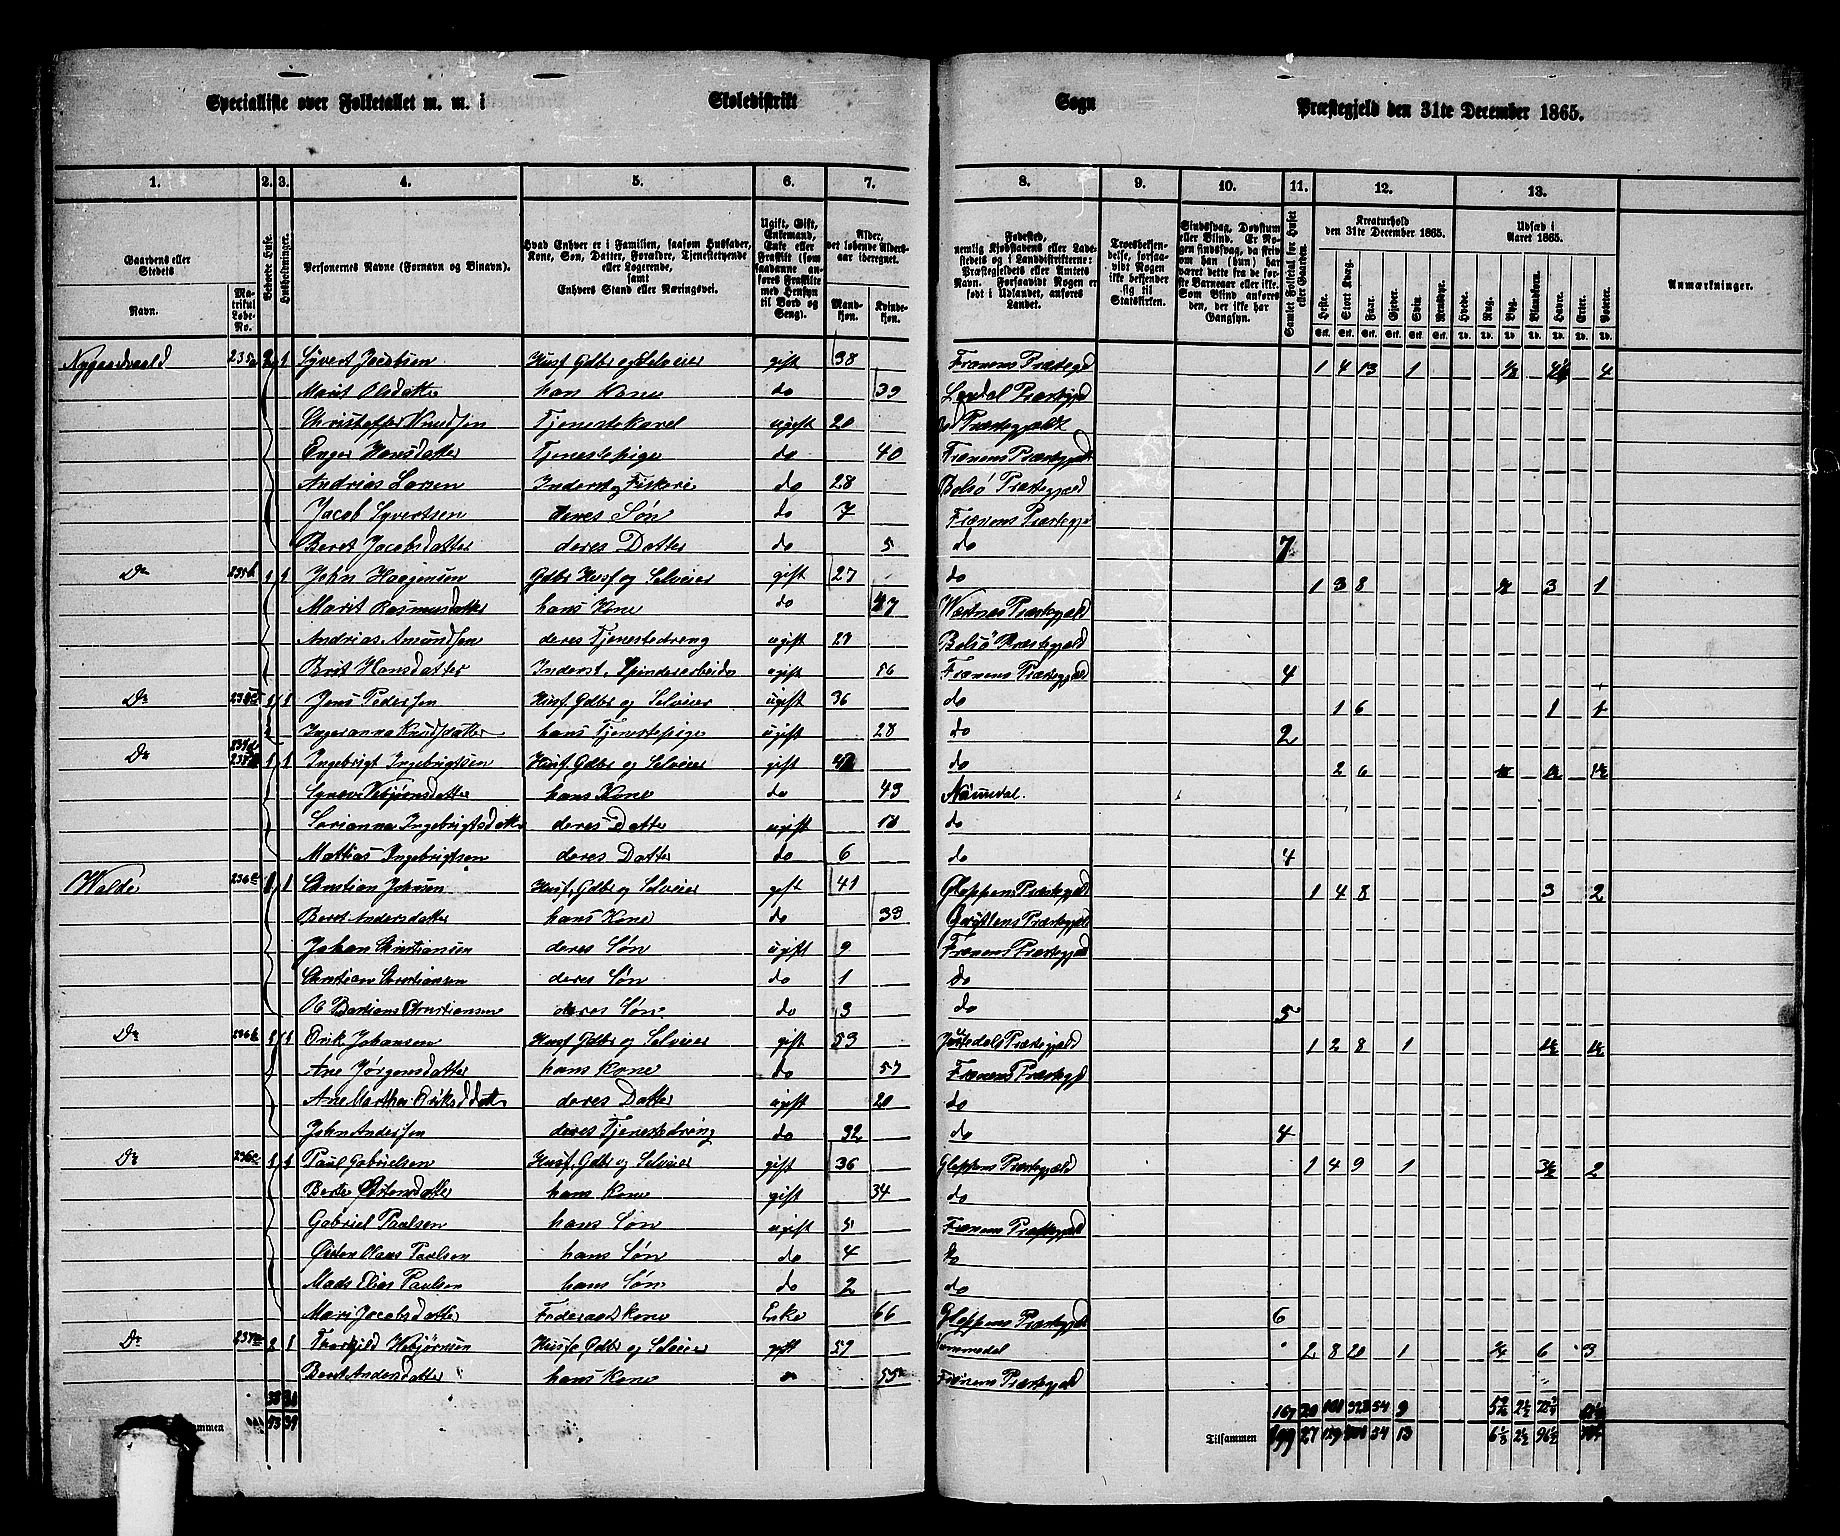 Specialliste over Folketallet m. m. i Skoledistrikt Sogn Præstegjeld den 31te December 1865.
1. 2. 3. 4. 5. 6. 7. 8. 9. 10. 11. 12. 13.
Gaardens eller Stedets Navn. Matrikul Løbe-No. Beboede Huse. Husholdninger. Personernes Navne (Fornavn og Binavn). Hvad Enhver er i Familien, saasom Husfader, Kone, Søn, Datter, Forældre, Tjenestetyende eller Logerende, samt Enhvers Stand eller Næringsvei. Ugift, Gift, Enkemand, Enke eller Fraskilt (som saadanne anføres Fraskilte med Hensyn til Bord og Seng). Alder, det løbende Alders-aar iberegnet. Mandkjøn. Kvindekjøn.
Fødested, nemlig Kjøbstadens eller Ladestedets og i Landdistrikterne: Præstegjeldets eller Amtets Navn. Forsaavidt Nogen er født i Udlandet, anføres Landet. Troesbekjendelse, forsaavidt Nogen ikke bekjender sig til Statskirken. Sindssvag, Døvstum eller Blind. Er Nogen sindssvag, da skrives om han (hun) har været dette fra de første Barneaar eller ikke. Som Blind anføres den, der ikke har Gangsyn. Samlet Folketal for Huset eller Gaarden. Kreaturhold den 31te December 1865. Udsæd i Aaret 1865. Anmærkninger.
Heste. Stort Kvæg. Faar. Gjeder. Svin. Rensdyr. Hvede. Rug. Byg. Blandkorn. Havre. Erter. Poteter.
Nygaardsvald 235a 2 1 Syvert Jacobsen Husf Gdbr og Selveier gift 38 Frænens Præstegd 1 4 13 1 4
Marit Olsdatter hans Kone do 39 Præstegjd
Christoffer Knudsen Tjenestekarl ugift 20 do Præstegjældt
Inger Hansdatter Tjenestepige do 40 Frænens Præstegjæld
Andrias Larsen Inderst og Fiskeri do 28 Bolsö Præstegjæld
Jacob Syvertsen deres Søn do 7 Frænens Præstegjd
Beret Jacobsdatter deres Datter do 5 do 7
Do 235b 1 1 John Haagensen Gdbr Husf og Selveier gift 27 do 1 3 8 3 1
Marit Rasmusdatter hans Kone do 47 Præstegjæld
Andrias Amundsen deres Tjenestedreng ugift 23 Bolsö Præstegjæld
Brit Hansdatter Inderst. Spinderarbeide ugift 56 Frænens Præstegjæld 4
Do 1 1 Jens Pedersen Husf. Gdbr og Selveier ugift 36 do 1 6 1 1
Ingeranna Knudsdatter hans Tjenestepige ugift 28 do 2
Do 1 1 Ingebrigt Ingebrigtsen Husf. Gdbr og Selveier gift do 2 6
hans Kone do 43
Sorianna Ingebrigtsdatter deres Datter ugift do
Mathias Ingebrigtsen deres Datter do 6 do 4
Walde 236a 1 1 Christian Johnsen Husf. Gdbr og Selveier gift 41 Gloppens Præstegjæld 1 4 8 3 2
Beret Andersdatter hans Kone do 33 Præstegjæld
Johan Christiansen deres Søn ugift 9 Frænens Præstegjæld
Christian Christiansen deres Søn do 1 do
Christiansen deres Søn do 3 do 5
Do 236b 1 1 Erik Johansen Husf Gdbr og Selveier gift 53 Præstegjæld 1 2 8 1
Ane Jørgensdatter hans Kone do 57 Frænens Præstegjd
Ane Marthe Eriksdatt deres Datter ugift 20 do
John Andersen deres Tjenestedreng do 32 do 4
Do 236c 1 1 Paul Gabrielsen Husf. Gdbr og Selveier gift 36 Gloppens Præstegjæld 1 4 9 1 3½ 2
hans Kone gift 34 do
Gabriel Paulsen hans Søn ugift 5 Frænens Præstegjæld
Paulsen hans Søn do 4 do
Mads Elias Paulsen hans Søn do 2 do
Mari Jacobsdatter Føderaadskone Enke 66 Gloppens Præstegjæld 6
Do 2 1 Husf Gdbr og Selveier gift 59 2 8 20 1 6 3
Beret Andersdatter hans Kone Frænens Præstegjæld
167 20 54 9
Tilsammen 199 27 54 13